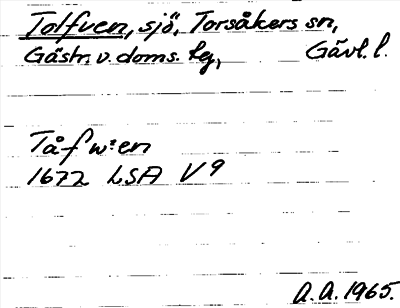 Tolfven, sjö, Torsåkers sn,
Gästr. v. doms. tg, Gävl. l.
Tåfw:en
1672 LSA V9
A.A. 1965.